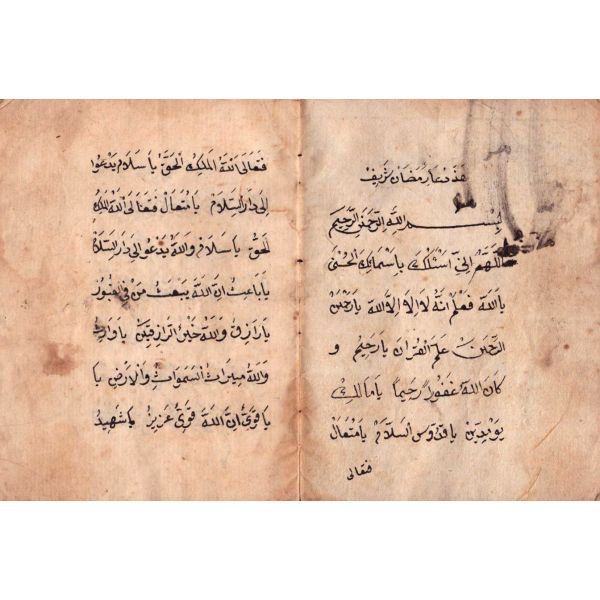 هذه دعاء رمضان شريف
بسم الله الرحمن الرحيم
اللهم اني اسئلك باسمائك الحسنى
يا الله فعلم انه لا اله الا الله يا رحمن
الرحمن علم القران يا رحيم و
كان الله غفورا رحيما يا مالك
يوم الدين يا قدوس السلام يا متعال
فتعالى
فتعالى الله الملك الحق يا سلام يدعوا
الى دار السلام يا متعال فتعالى الله الملك
الحق يا سلام والله يدعو الى دار السلام
يا باعث ان الله يبعث من في القبور
يا رازق والله خير الرازقين يا وارث
والله ميراث السموات والارض يا
يا قوى ان الله قوى عزيز يا شهيد